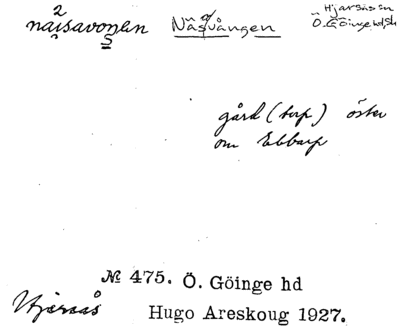 naisavoŋen Näsavången Hjärsås sn
Ö. Göinge hd, Sk
gård (torp) öster
om Ebbarp
№ 475. Ö. Göinge hd
Hjärsås Hugo Areskoug 1927.